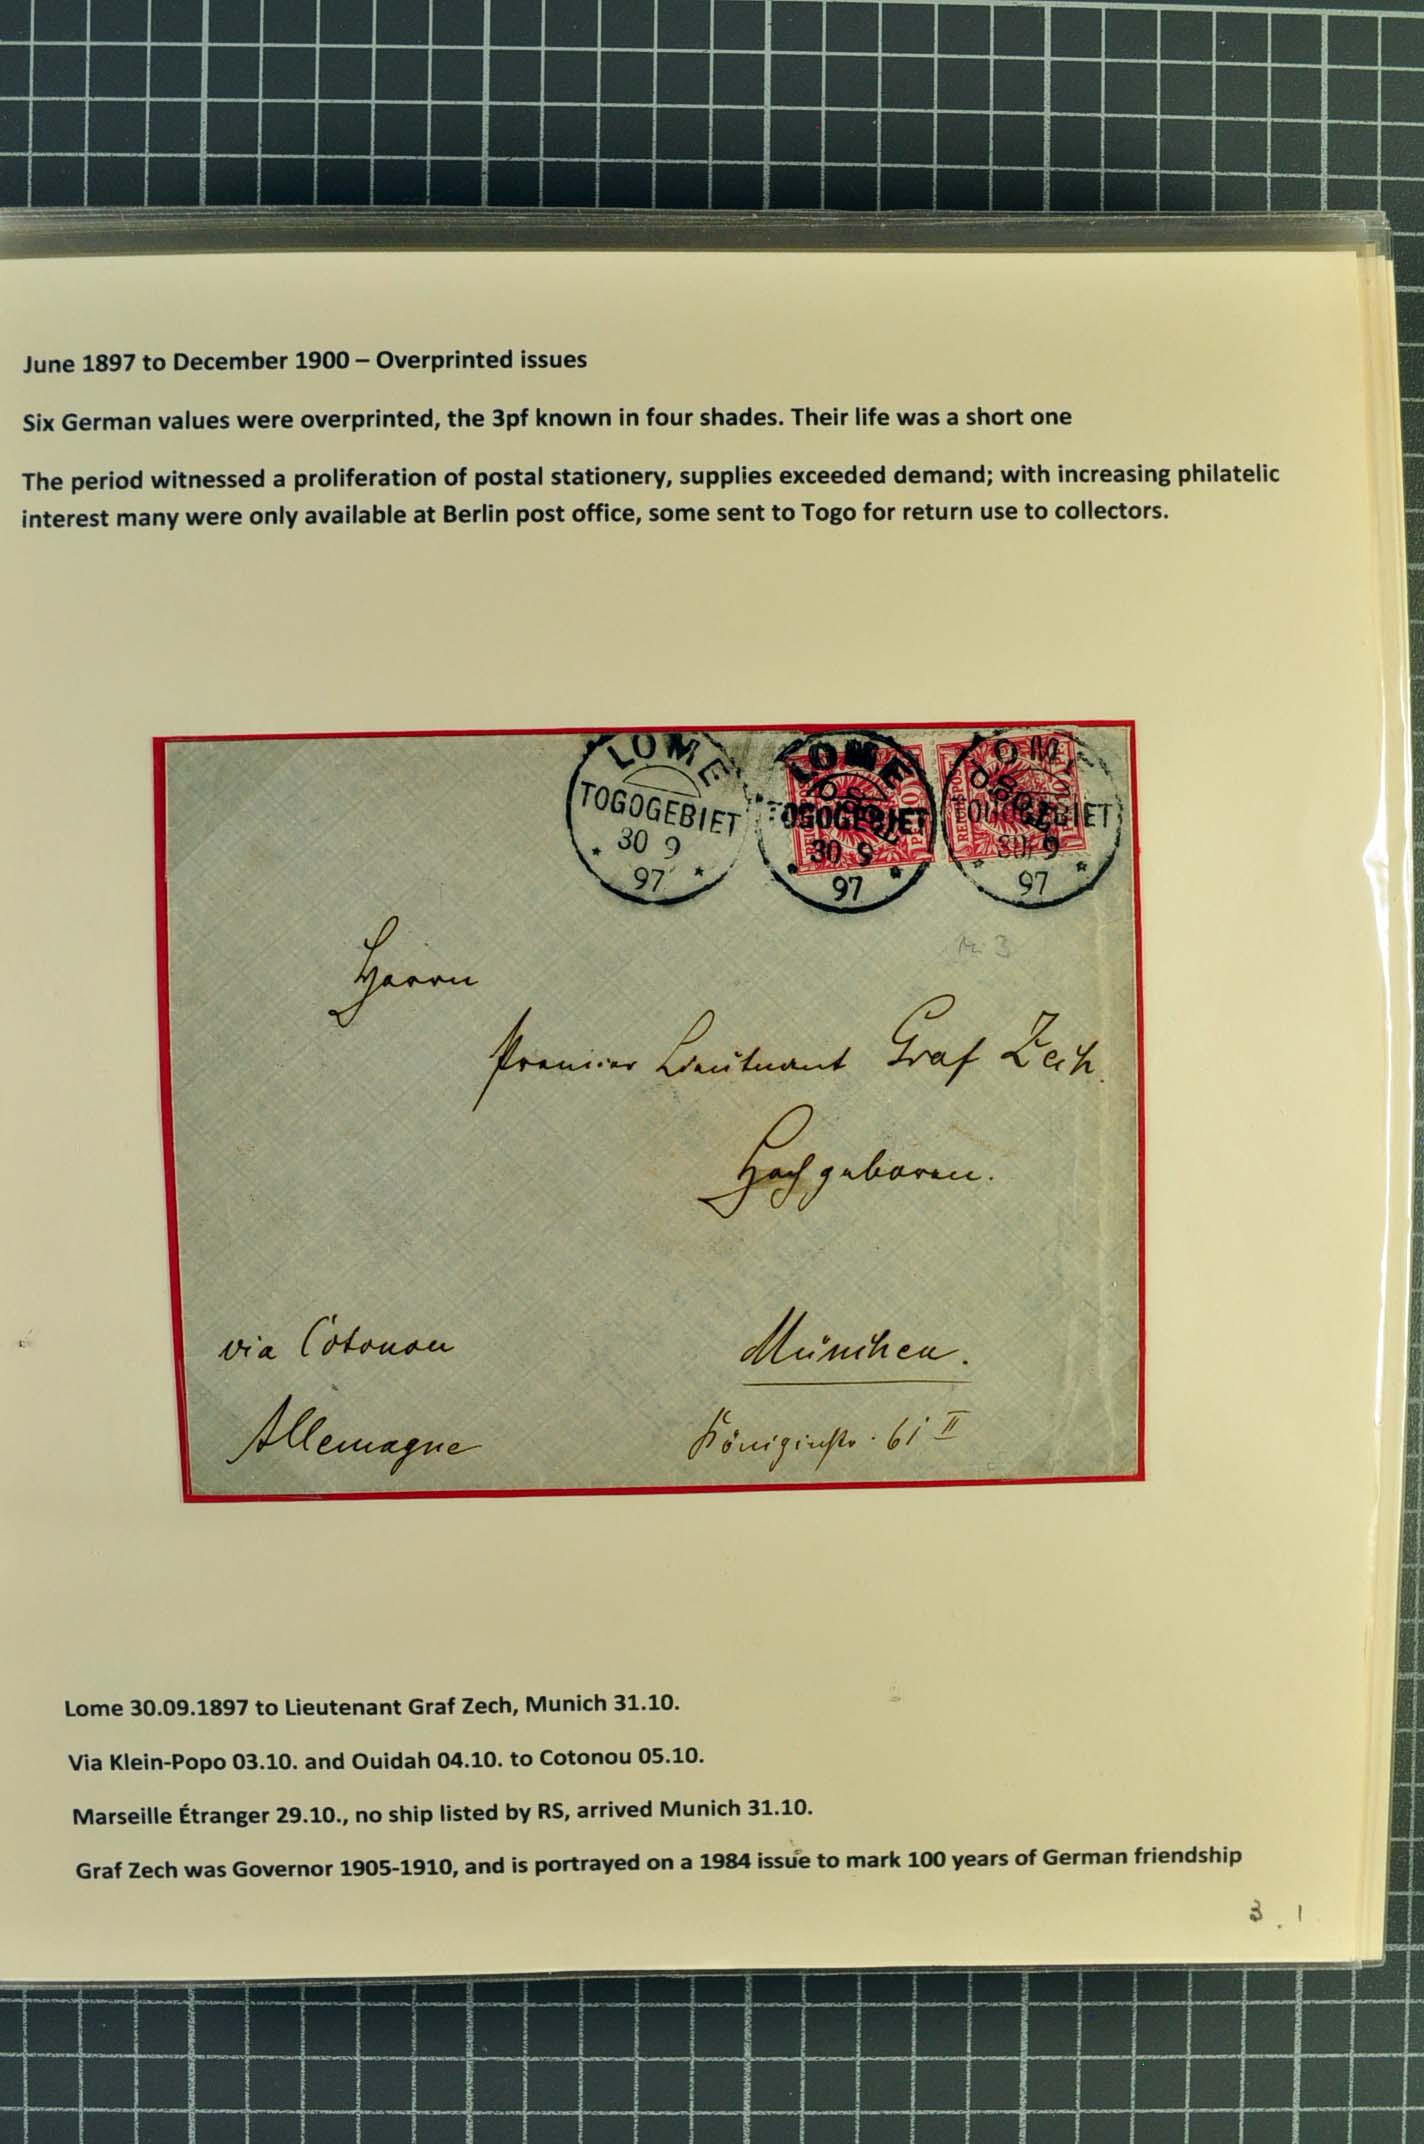 June 1897 to December 1900 – Overprinted issues
Six German values were overprinted, the 3pf known in four shades. Their life was a short one
The period witnessed a proliferation of postal stationery, supplies exceeded demand; with increasing philatelic
interest many were only available at Berlin post office, some sent to Togo for return use to collectors.
LOME
TOGOGEBIET
30 9
97
LOME
TOGOGEBIET
30 9
97
LOME
TOGOGEBIET
30 9
97
Herrn
Premier Lieutenant Graf Zech.
Hochgeboren.
via Cotonou
München.
Allemagne
Königinstr. 61 II
Lome 30.09.1897 to Lieutenant Graf Zech, Munich 31.10.
Via Klein-Popo 03.10. and Ouidah 04.10. to Cotonou 05.10.
Marseille Étranger 29.10., no ship listed by RS, arrived Munich 31.10.
Graf Zech was Governor 1905-1910, and is portrayed on a 1984 issue to mark 100 years of German friendship
3.1